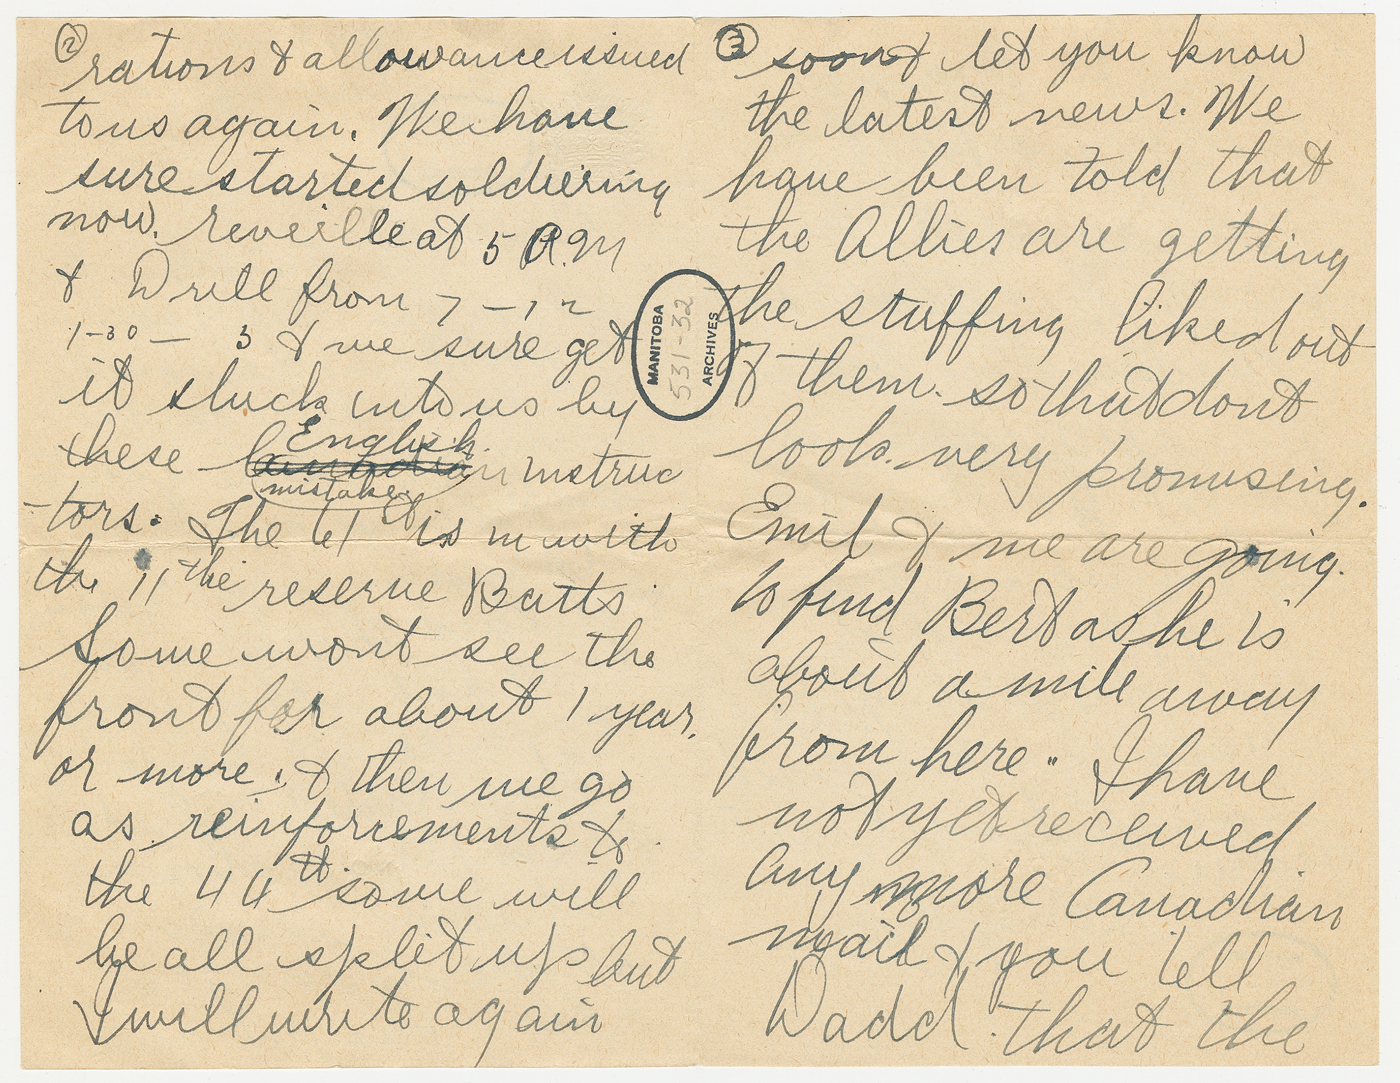 ②
rations & allowance issued
to us again. We have
sure started soldiering
now. reveille at 5 A.M
& Drill from 7 - 12
1-30 - 3 & we sure get
it stuck into us by
English
these Canadian instruc
mistake
-tors. The 61st is in with
the 11 the reserve Batts
Some wont see the
front for about 1 year.
or more. & then we go
as reinforcements &
the 44th some will
be all split up but
I will write again
MANITOBA
531-32
ARCHIVES
③
soon & let you know
the latest news. We
have been told that
the Allies are getting
the stuffing liked out
of them. so that dont
look very promising.
Emil & me are going.
to find Bert as he is
about a mile away
from here. I have
not yet received
any more Canadian
mail & you tell
Dadd. that the